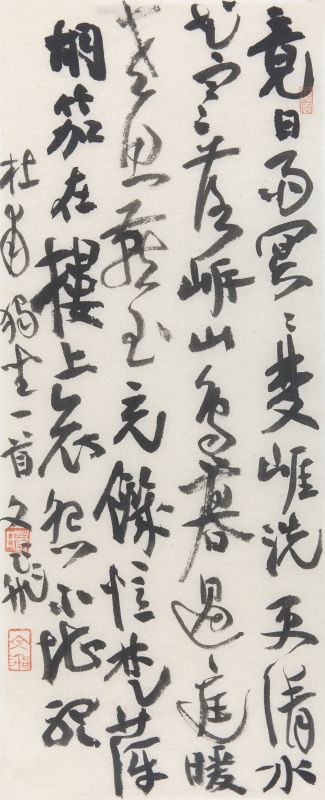 竟日雨冥々雙崕洗更清水
花寒落岸山鳥暮過庭暖
老思燕玉充饑憶楚萍
胡笳在樓上哀怨不堪聽
杜甫獨坐一首